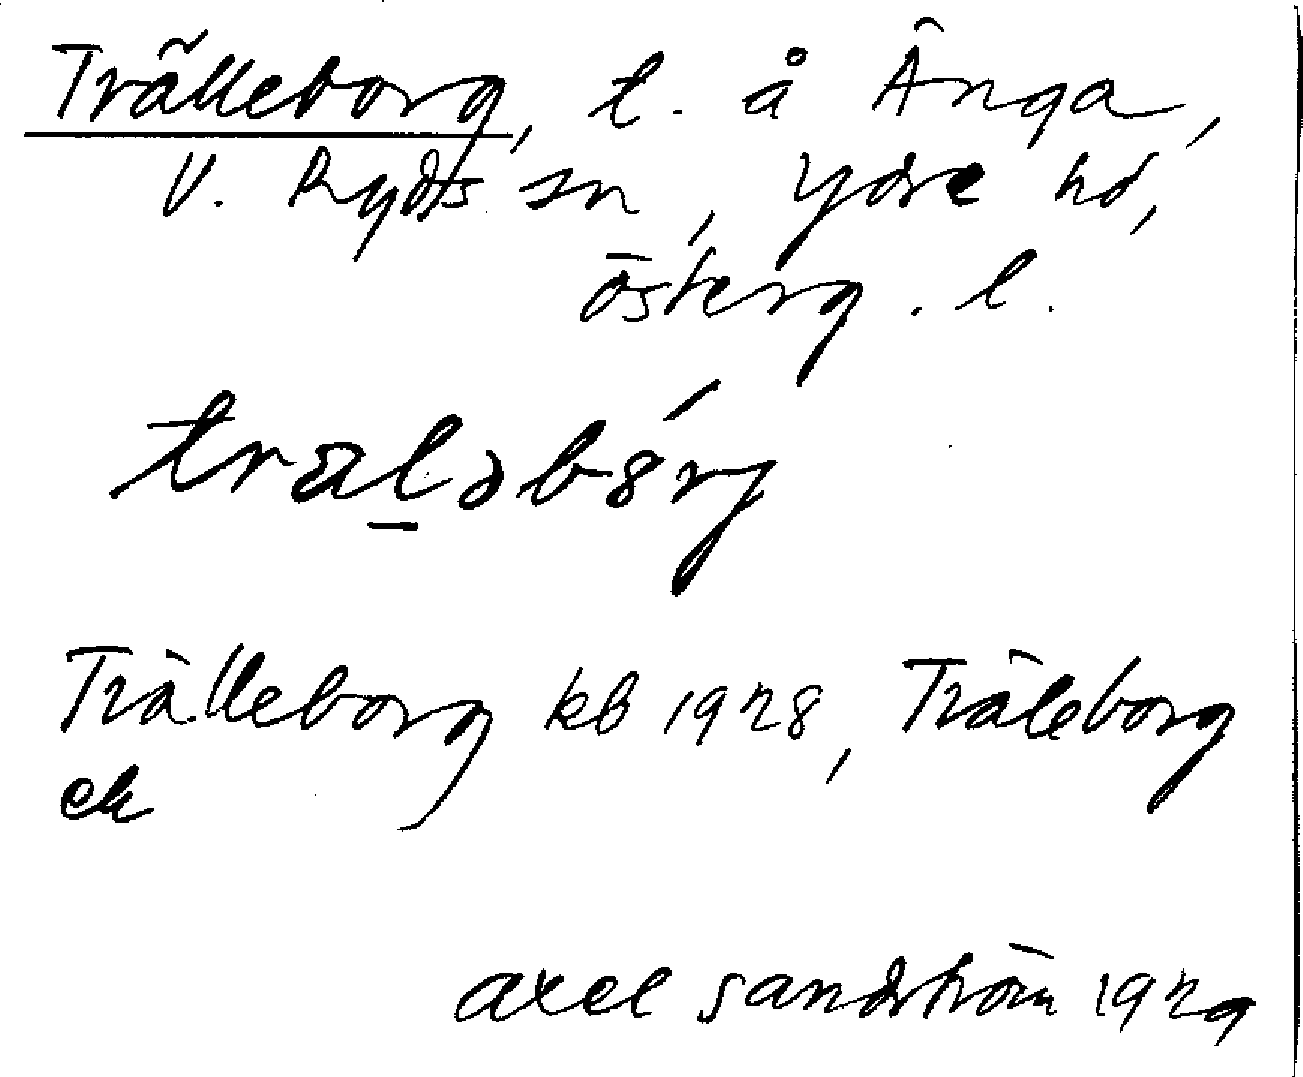 Trälleborg, t. å Änga,
V. Ryds sn, Ydre hd,
Österg. l.
Trälleborg kb 1928, Träleborg
ek
Axel Sandström 1929